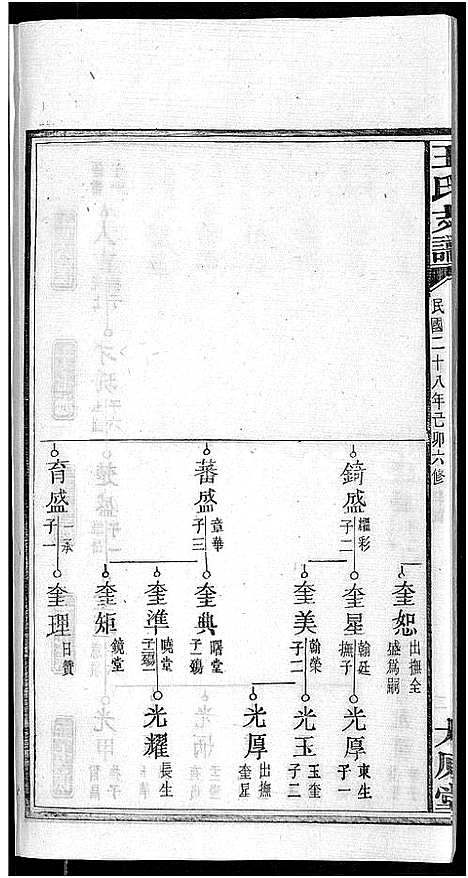 王氏支譜
民國二十八年己卯六修
奎恕
出撫全
盛為嗣
錡盛
耀彩
子二
奎星
翰廷
撫子
光厚
東生
子一
奎美
翰榮
子二
光玉
玉奎
子二
光厚
出撫
奎星
蕃盛
章華
子三
奎典
曙堂
子殤
奎準
曉堂
光耀
長生
奎矩
鏡堂
育盛
一承
子一
奎理
日贊